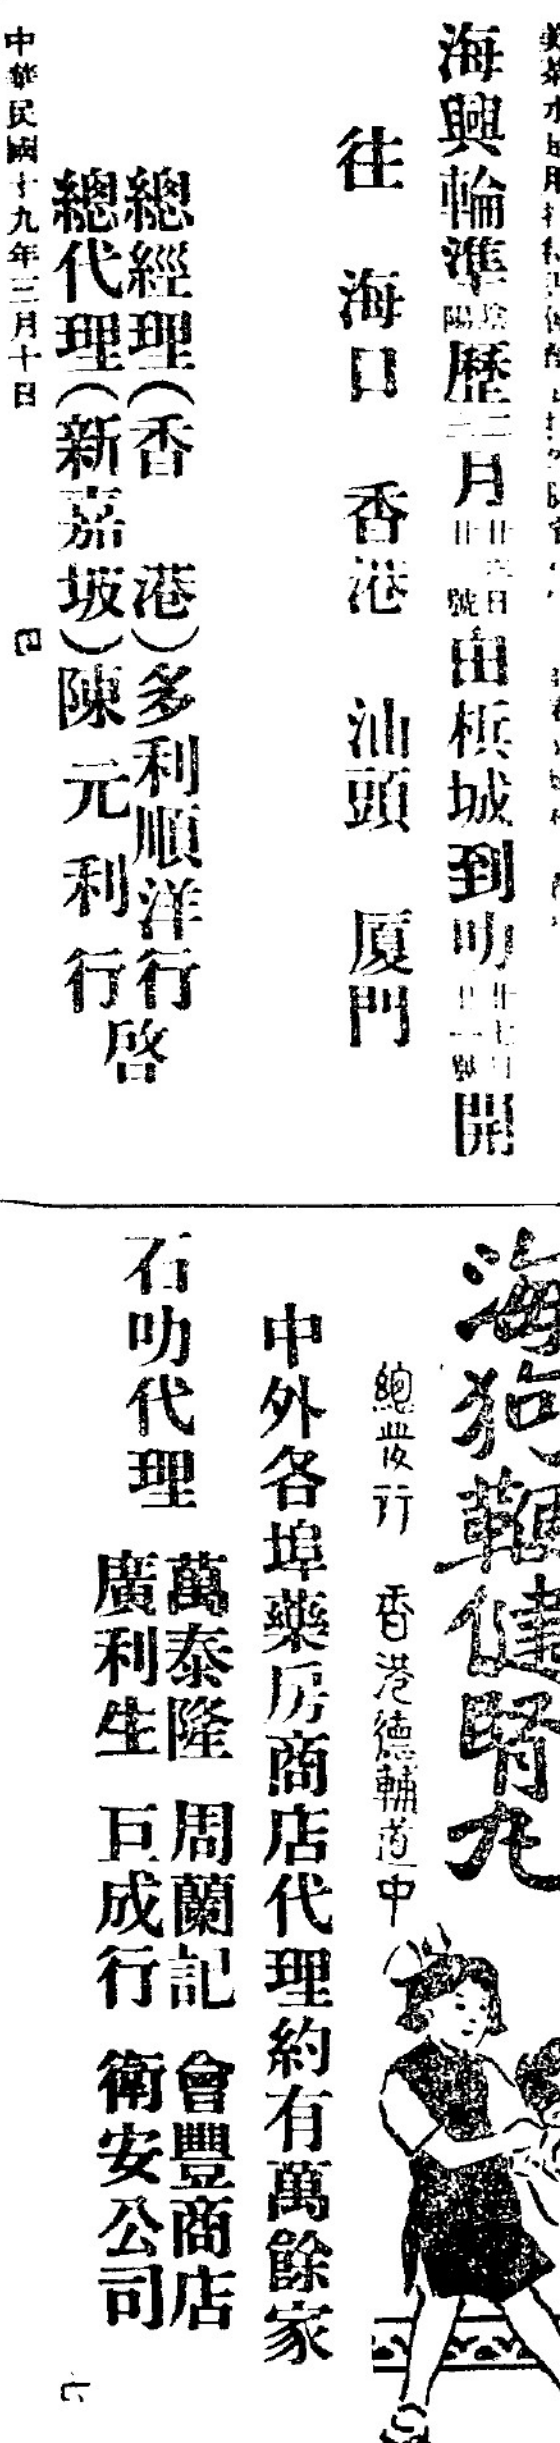 海興輪準陰陽歷二三月廿日廿號由梹城到叻廿七日廿號開
往 海口 香港 汕頭 厦門
總經理（香 港）多利順洋行
總代理（新嘉坡）陳元利行
啓
中華民國十九年三月十日
海狗鞭健腎丸
總發行 香港德輔道中
中外各埠藥房商店代理約有萬餘家
石叻代理
萬泰隆 周蘭記 會豐商店
廣利生 巨成行 衛安公司
七